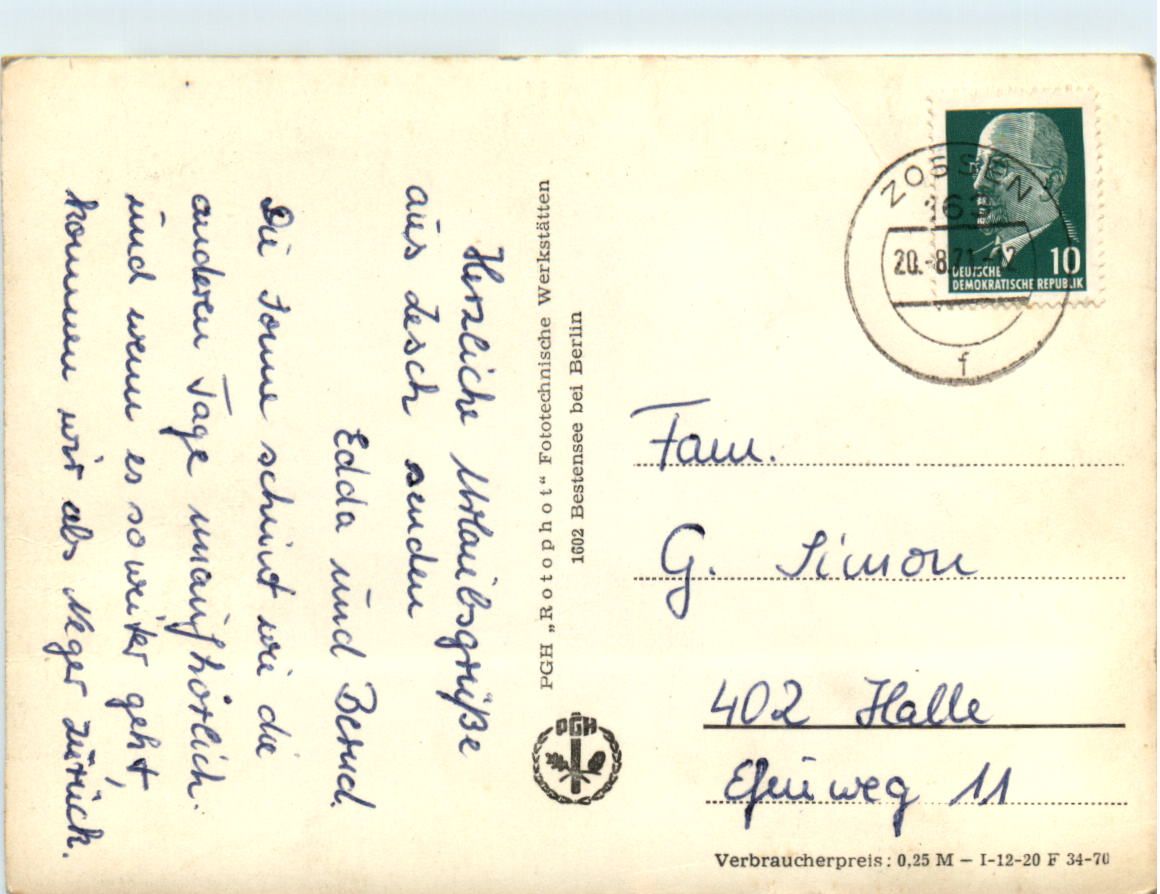 Herzliche Urlaubsgrüße
aus Zesch senden
Edda und Bernd.
Die Sonne scheint wie die
anderen Tage unaufhörlich.
und wenn es so weiter geht,
kommen wir als Neger zurück.
PGH „Rotophot“ Fototechnische Werkstätten
1602 Bestensee bei Berlin
PGH
ZOSSEN
20.-8.71-12
f
10
DEUTSCHE
DEMOKRATISCHE REPUBLIK
Fam.
G. Simon
402 Halle
Efeuweg 11
Verbraucherpreis: 0,25 M — I-12-20 F 34-70